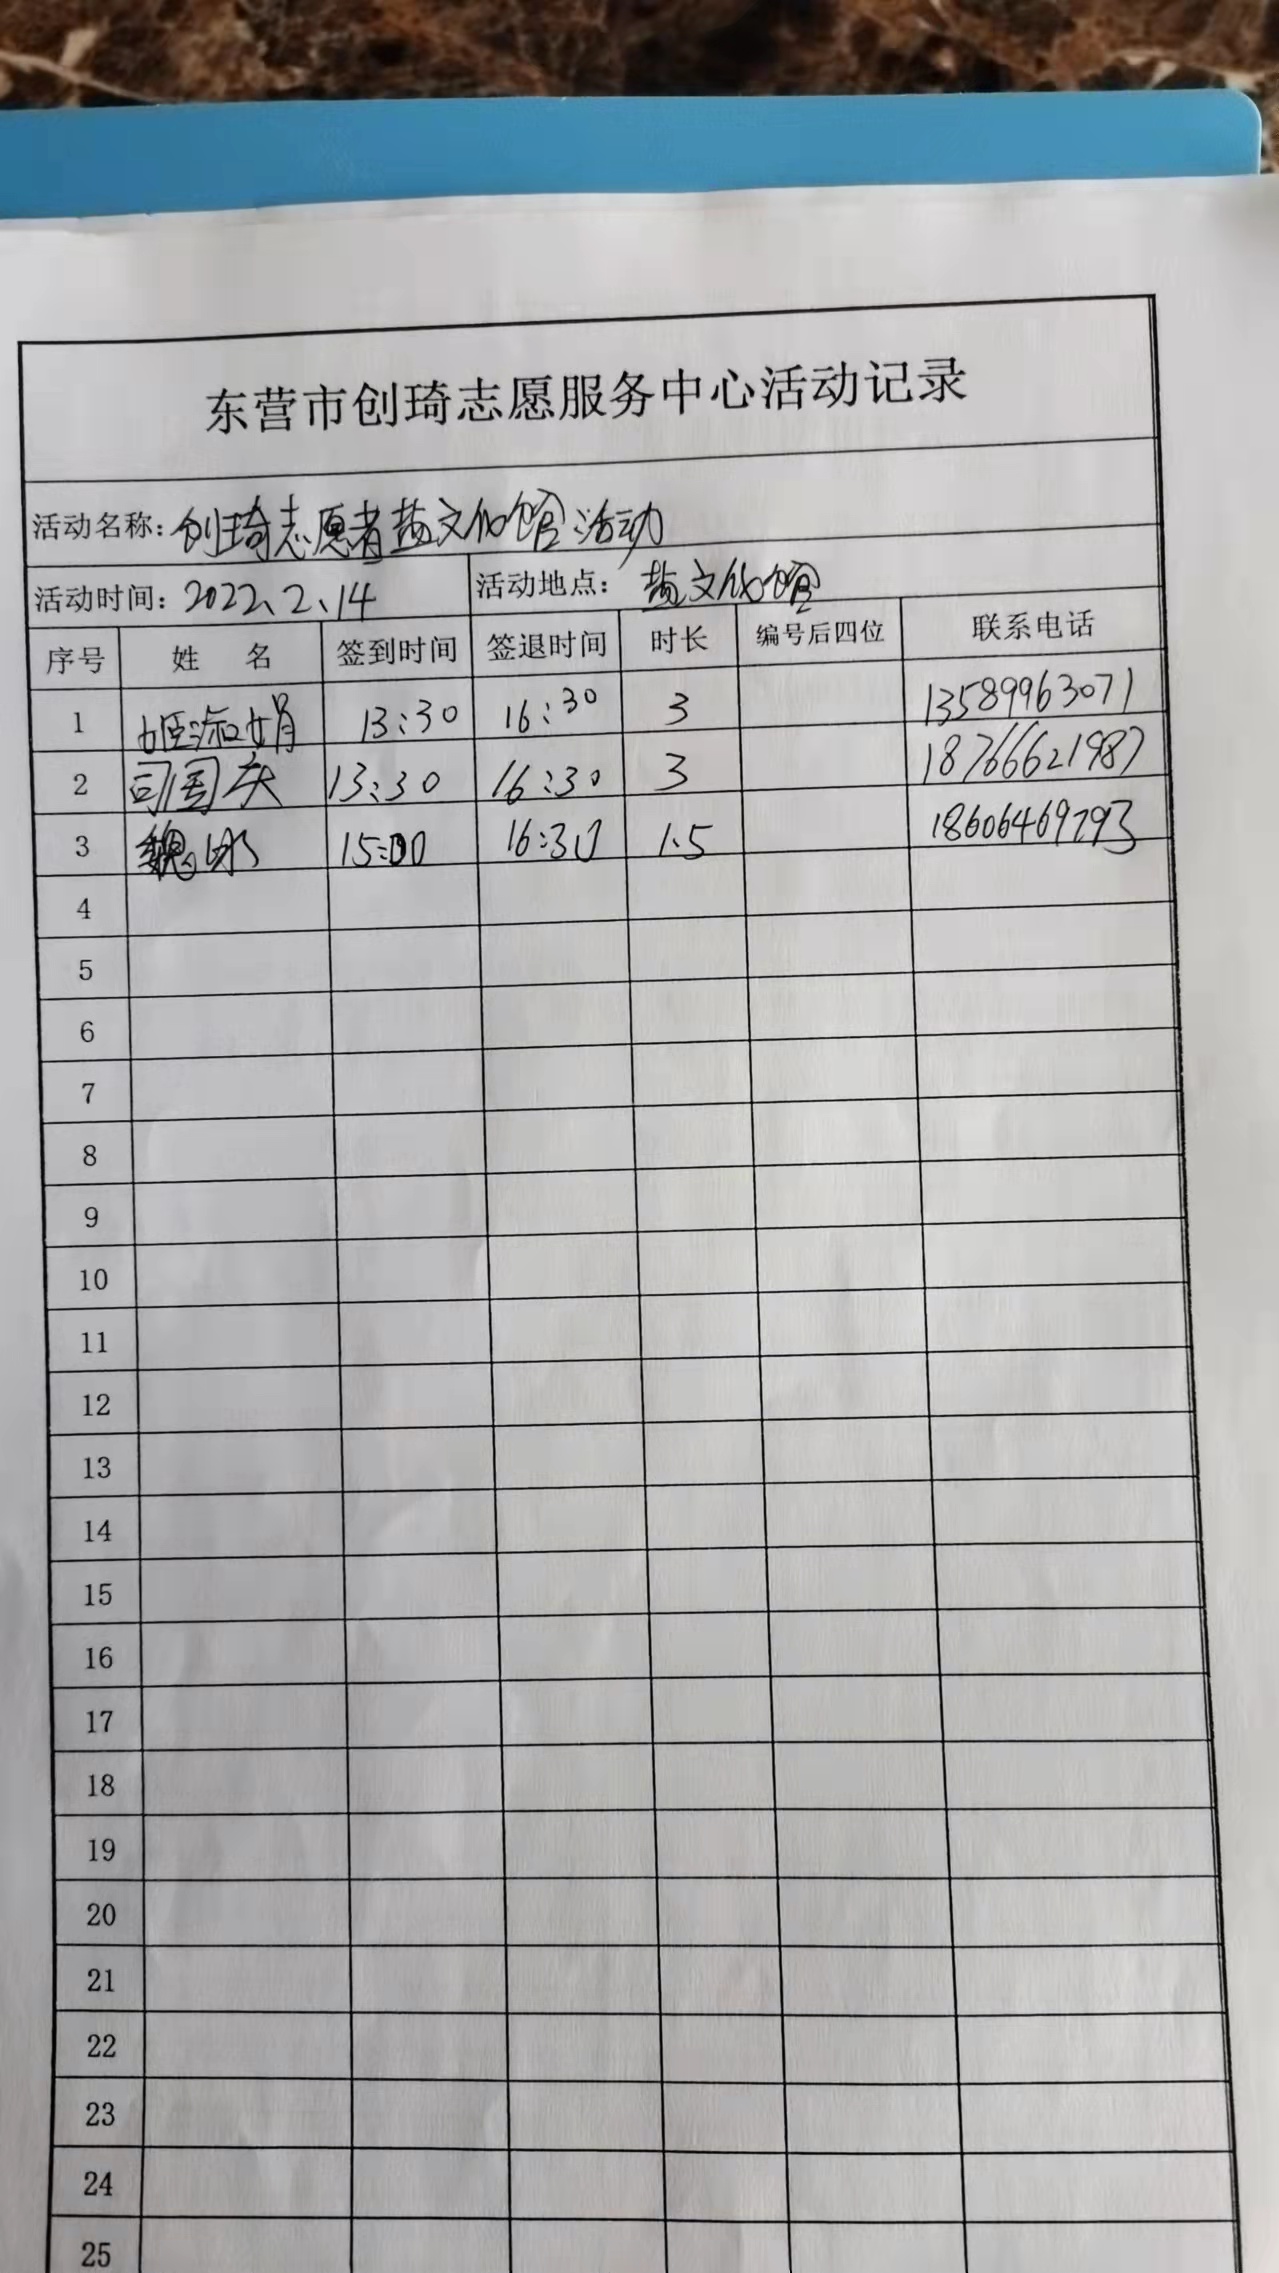 东营市创琦志愿服务中心活动记录
活动名称：创琦志愿者盐文化馆活动
活动时间：2022、2、14 活动地点：盐文化馆
序号 姓 名 签到时间 签退时间 时长 编号后四位 联系电话
1 姬淑娟 13:30 16:30 3 13589963071
2 司国庆 13:30 16:30 3 18766621987
3 魏 15:00 16:30 1.5 18606469293
4
5
6
7
8
9
10
11
12
13
14
15
16
17
18
19
20
21
22
23
24
25